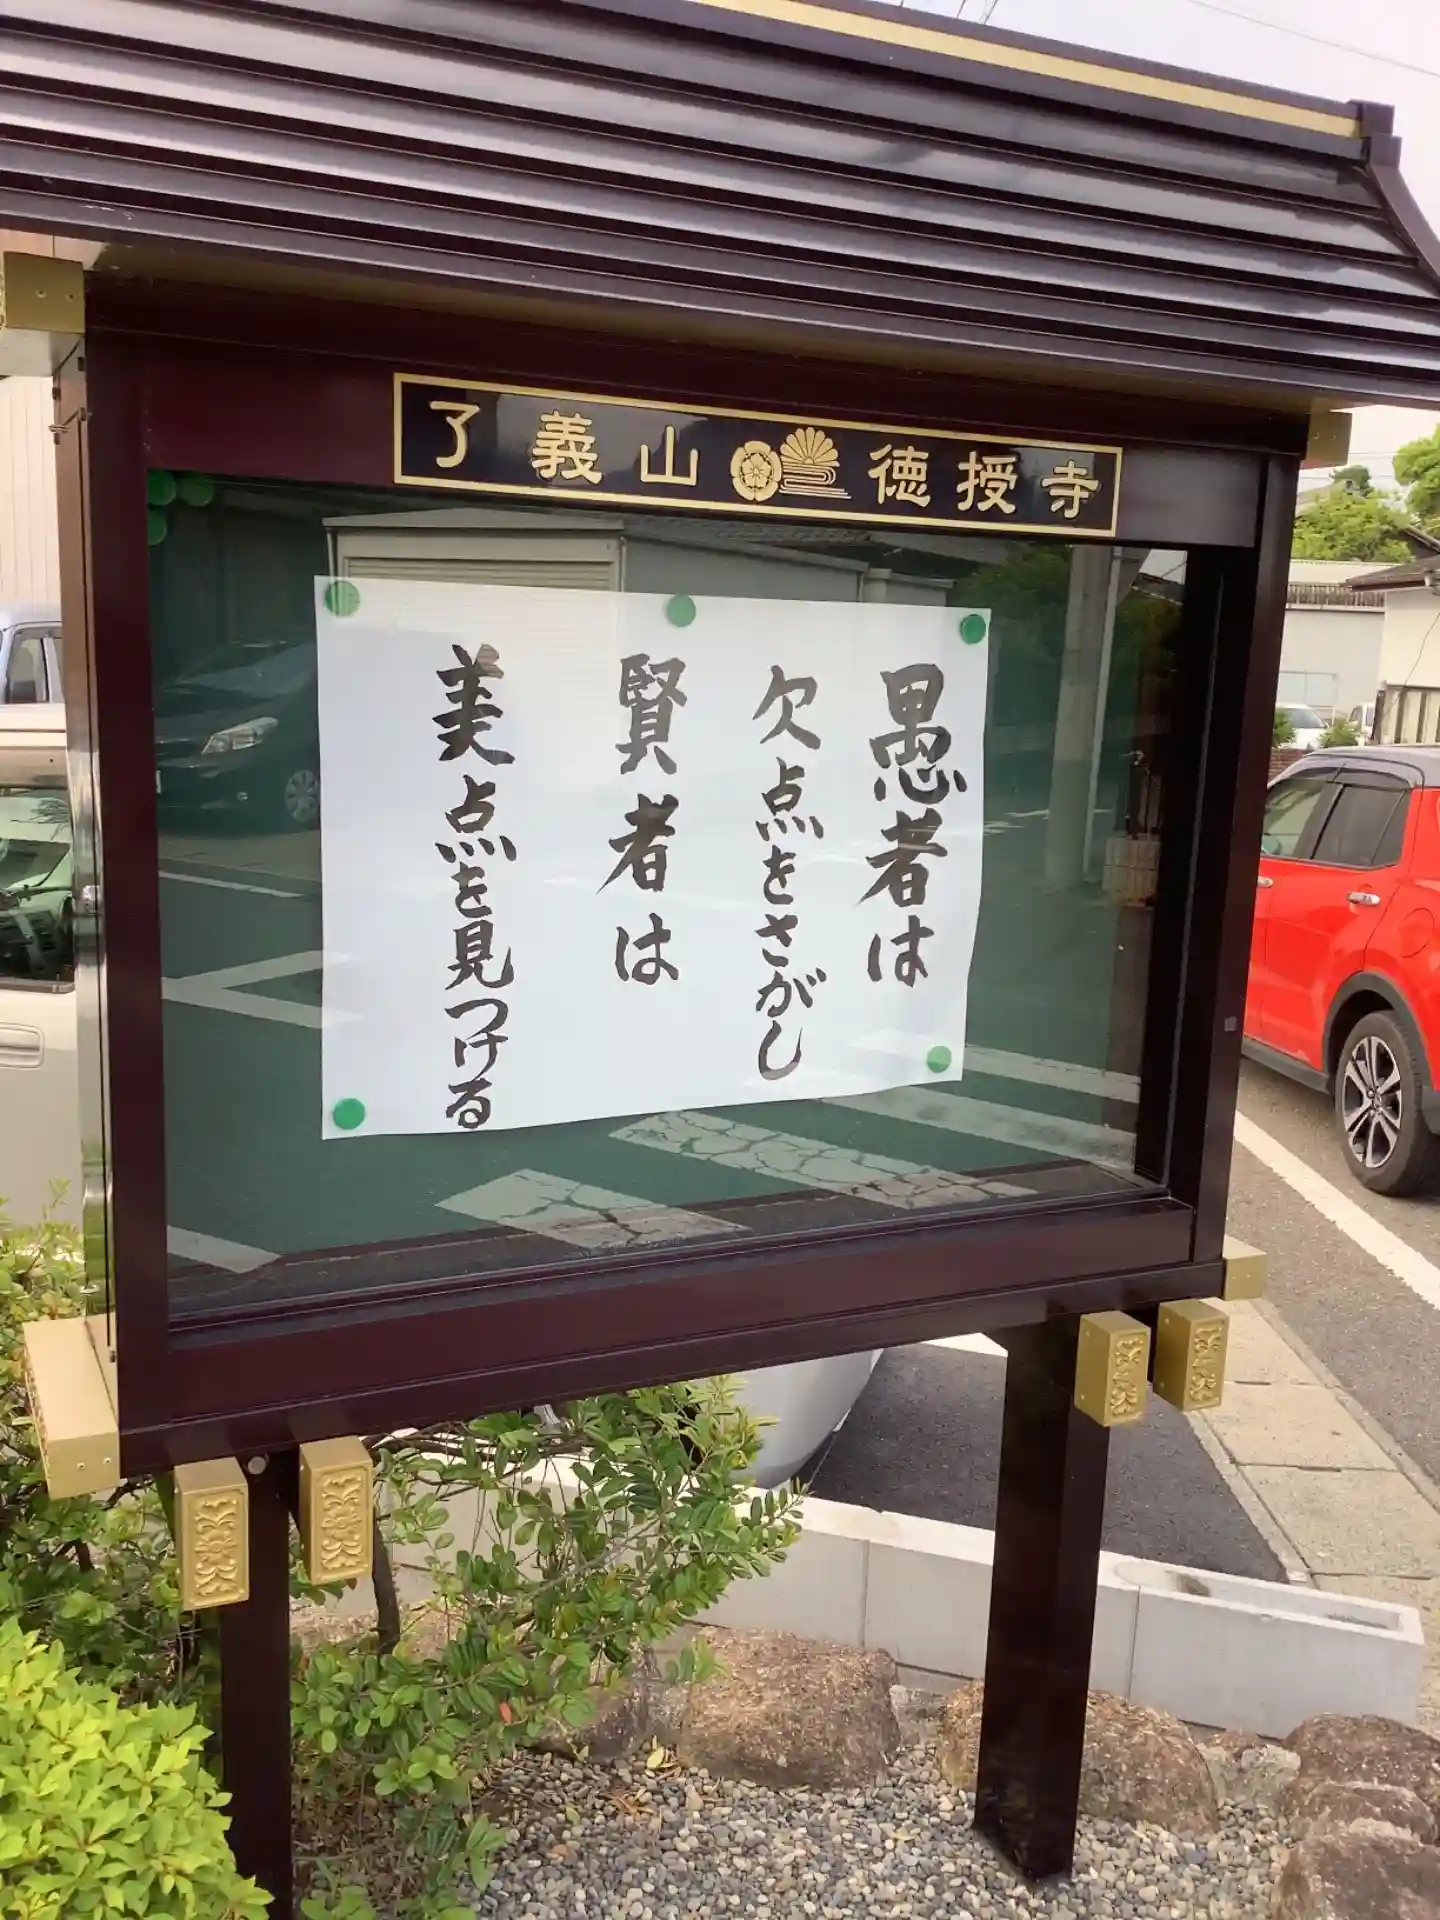 了義山 徳授寺
愚者は
欠点をさがし
賢者は
美点を見つける